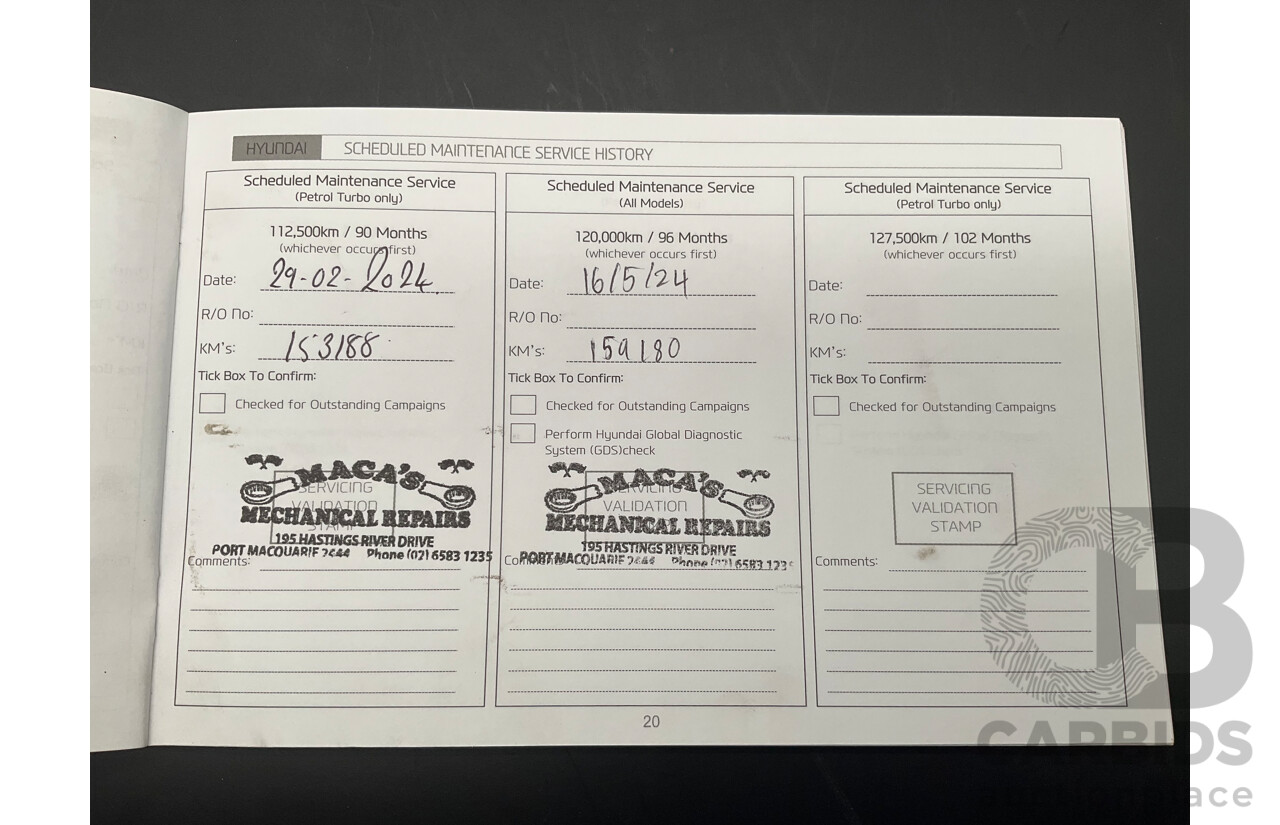 HYUNDAI SCHEDULED MAINTENANCE SERVICE HISTORY
Scheduled Maintenance Service
(Petrol Turbo only)
112,500km / 90 Months
(whichever occurs first)
Date: 29-02-2024
R/O No:
KM's: 153188
Tick Box To Confirm:
Checked for Outstanding Campaigns
MACA'S
SERVICING
VALIDATION
STAMP
MECHANICAL REPAIRS
195 HASTINGS RIVER DRIVE
PORT MACQUARIE 2444 Phone (02) 6583 1235
Comments:
Scheduled Maintenance Service
(All Models)
120,000km / 96 Months
(whichever occurs first)
Date: 16/5/24
R/O No:
KM's: 159180
Tick Box To Confirm:
Checked for Outstanding Campaigns
Perform Hyundai Global Diagnostic
System (GDS)check
MACA'S
SERVICING
VALIDATION
MECHANICAL REPAIRS
195 HASTINGS RIVER DRIVE
PORT MACQUARIE 2444 Phone (02) 6583 123
Comments:
Scheduled Maintenance Service
(Petrol Turbo only)
127,500km / 102 Months
(whichever occurs first)
Date:
R/O No:
KM's:
Tick Box To Confirm:
Checked for Outstanding Campaigns
SERVICING
VALIDATION
STAMP
Comments:
20
CB
CARBIDS
auctionplace